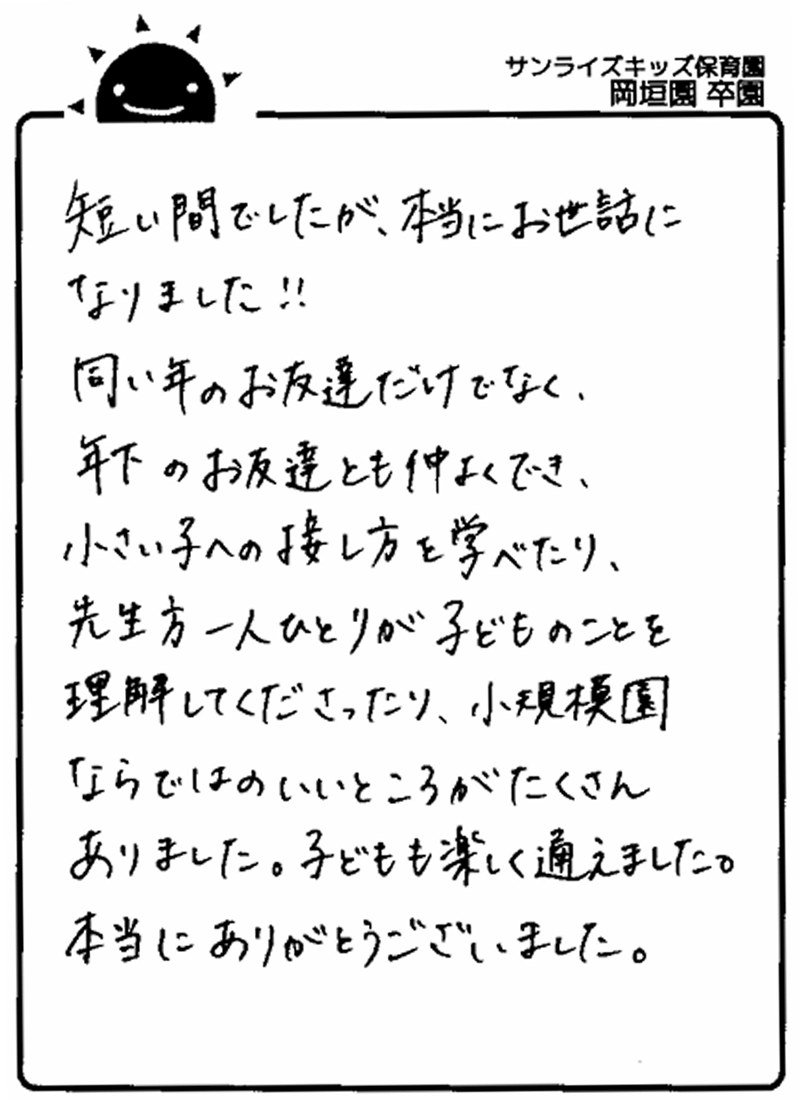 サンライズキッズ保育園
岡垣園 卒園
短い間でしたが、本当にお世話に
なりました!!
同い年のお友達だけでなく、
年下のお友達とも仲よくでき、
小さい子への接し方を学べたり、
先生方一人ひとりが子どものことを
理解してくださったり、小規模園
ならではのいいところがたくさん
ありました。子どもも楽しく通えました。
本当にありがとうございました。